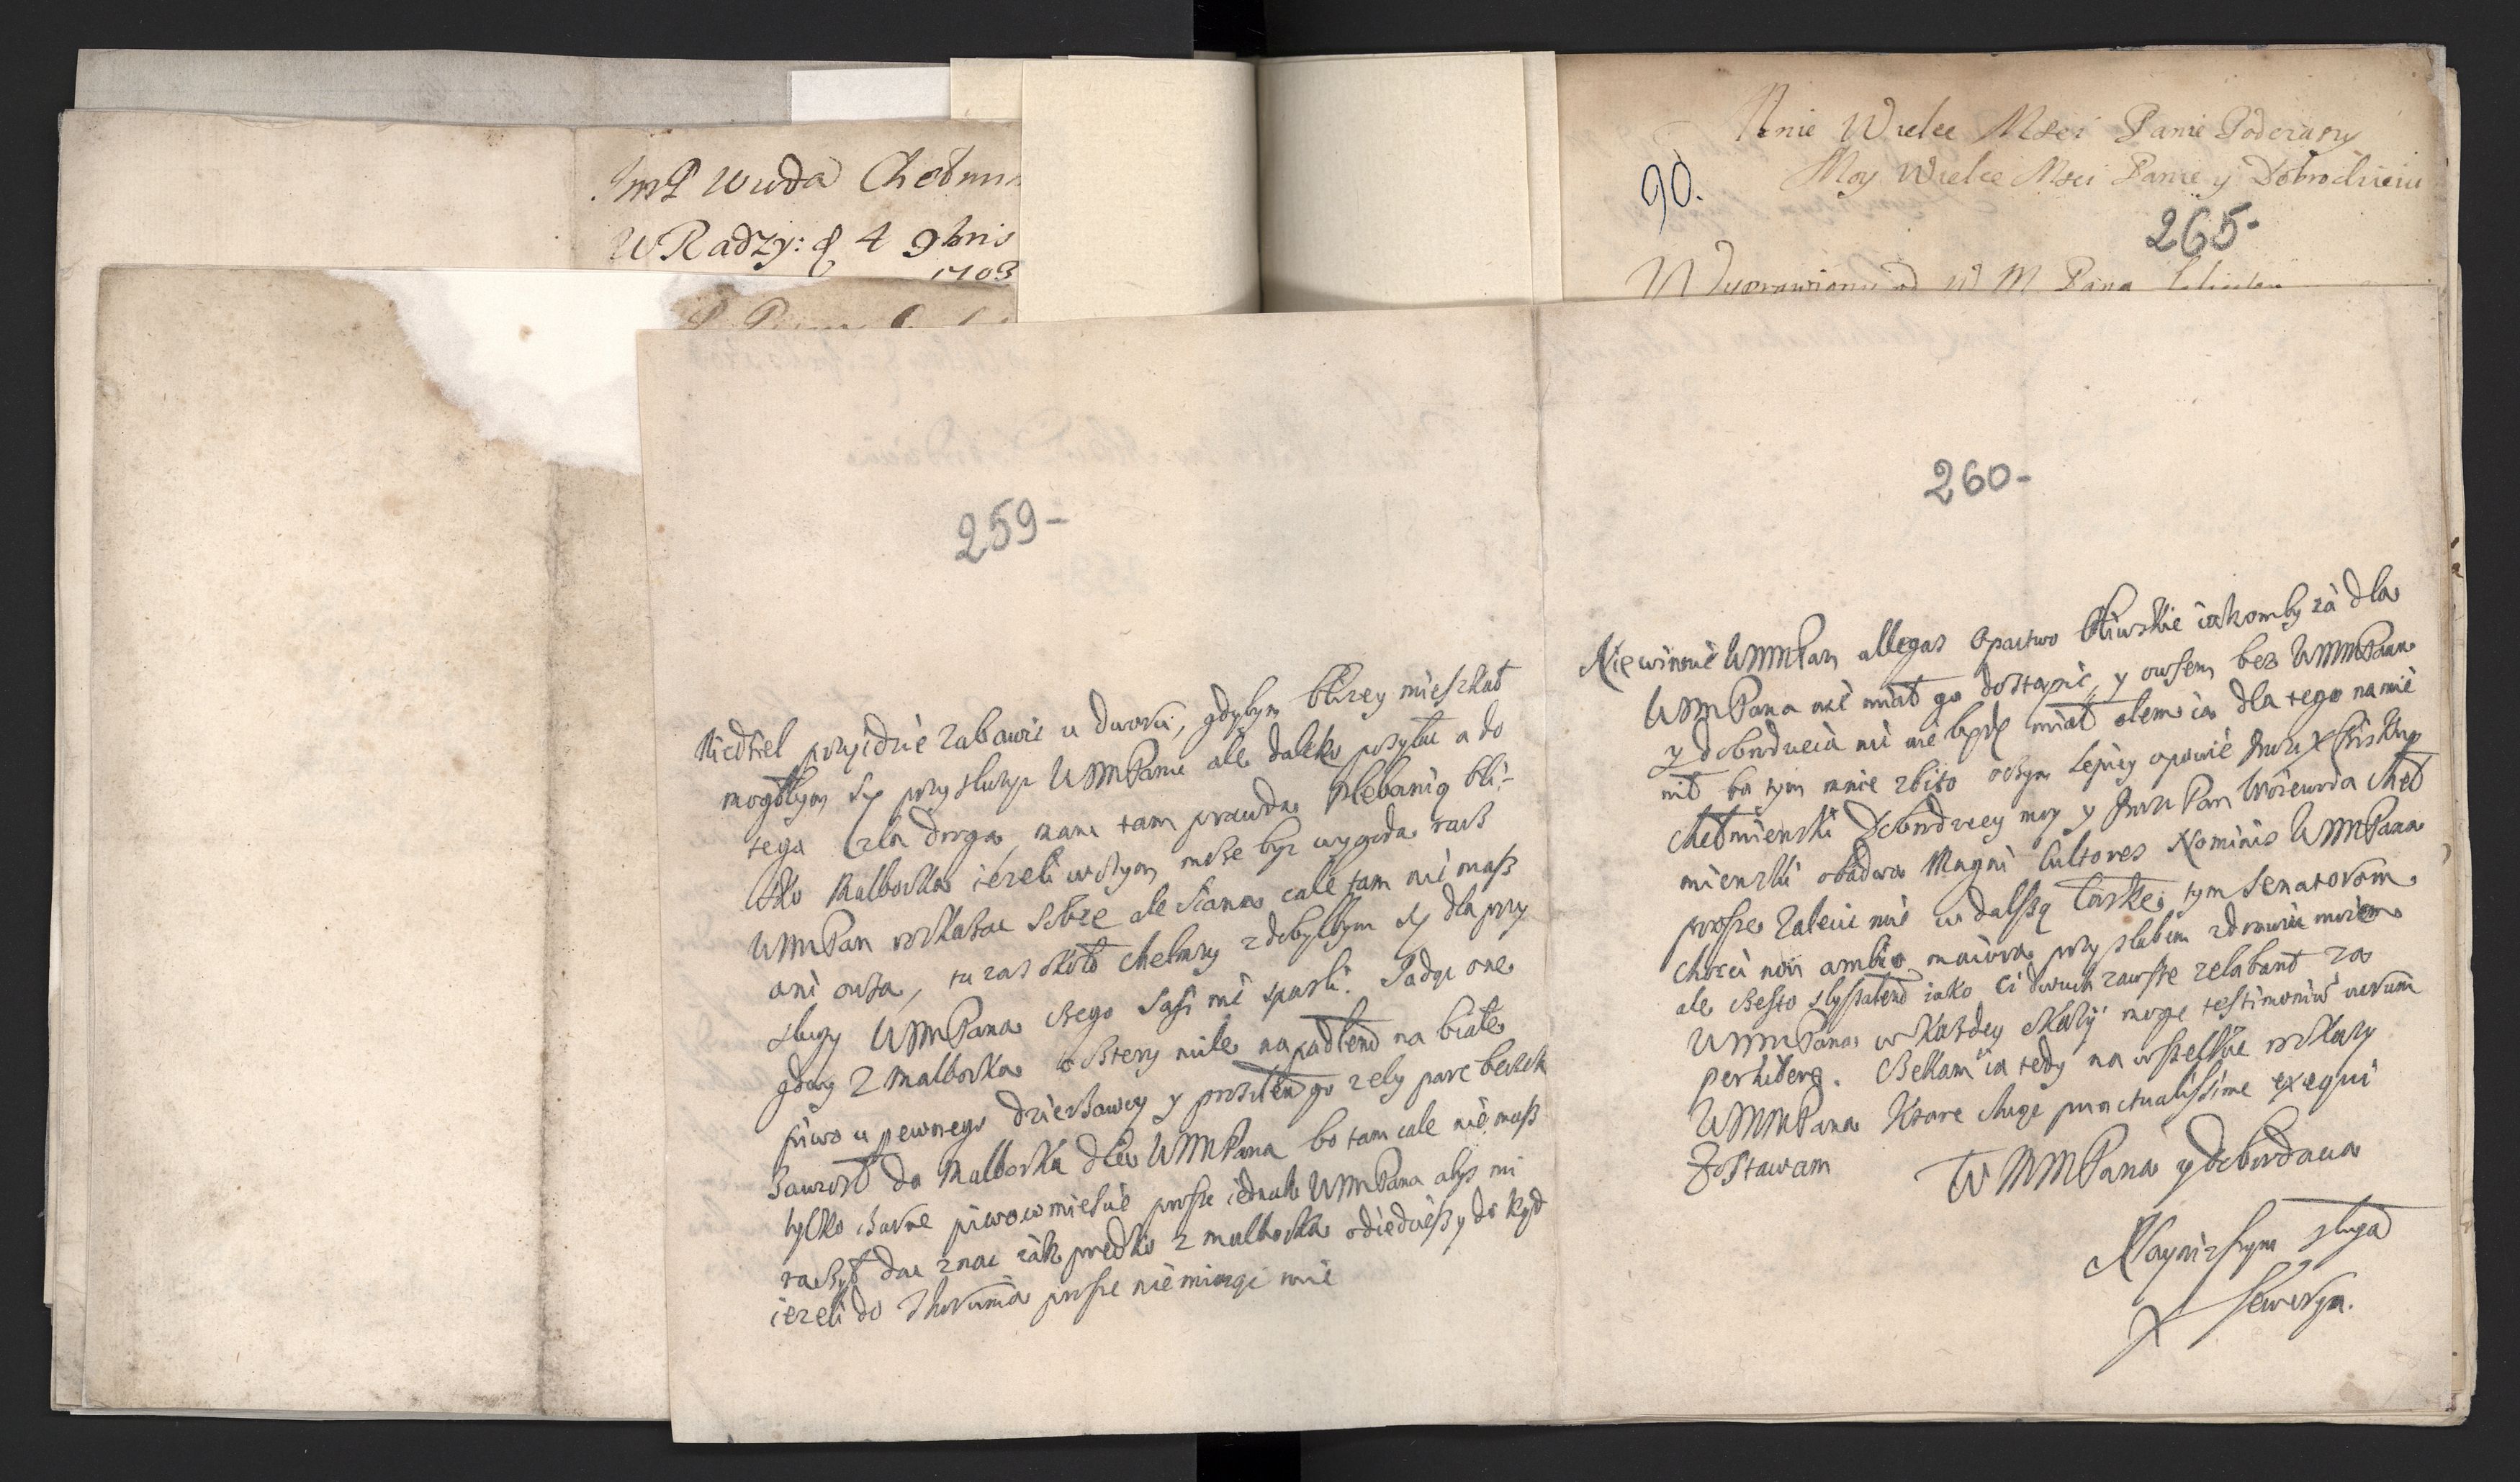 JmP Wwda Chełmiń
W Radzy: d 4 9bris
1703
90.
Mnie Wielce Msci Panie Podczaszy
Moy Wielce Msci Panie y Dobrodzieiu
265-
Wyprawiony od W M Pana
259-
Niedziel przyidzie zabawic u dworu, gdybym bliżey mieszkał
mogłbym się przysłużyc WMMPanu ale daleko a do
tego zła droga, mam tam prawda plebanią bli-
sko Malborka ieżeli w czym może byc wygoda racz
WMMPan roskazac sobie ale siana cale tam nie masz
ani owsa, tu zas około chełmży zdobyłbym się dla przy
sługi WMMPana czego Sasi nie spasli. Jadąc one
gday z Malborka cztery mile napadłem na białe
piwo u pewnego dzierżawcy y prosiłem go żeby parę beczek
zawiozł do Malborka dla WMMPana bo tam cale nie masz
tylko czarne piwo w miescie proszę iednak WMMPana abys mi
raczył dac znac iak prędko z malborka odiedziesz y do kąd
ieżeli do Thorunia proszę nie miiaąc mie
260-
Niewinnie WMMPan allegas Opactwo iakomby ia dla
WMMPana nie miał go dostąpic, y owszem bez WMMPana
y dobrodzieia nic nie będę miał alem ia dla tego na nie
nie bo tym mnie zbito oczym lepiey opowie Jmsc X Biskup
Chełmienski Dobrodziey moy y Jmsc Pan Woiewoda Cheł
mienski obadwa Magni Cultores Nominis WMMPana
proszę zalecic mie w dalszą łaskę tym Senatorom
chocia non ambio maiora przy słabem zdrowiu moiem
ale często słyszałem iako ci dwuch zawsze zelabant za
WMMPana w każdey okazij mogę testimoniu verum
perhibere. Czekam ia tedy na wszelkie roskazy
WMMPana ktore chcę punctualissime exequi
Zostawam WMMPana y dobrodzieia
Nayniższym sługą
X Seweryn.